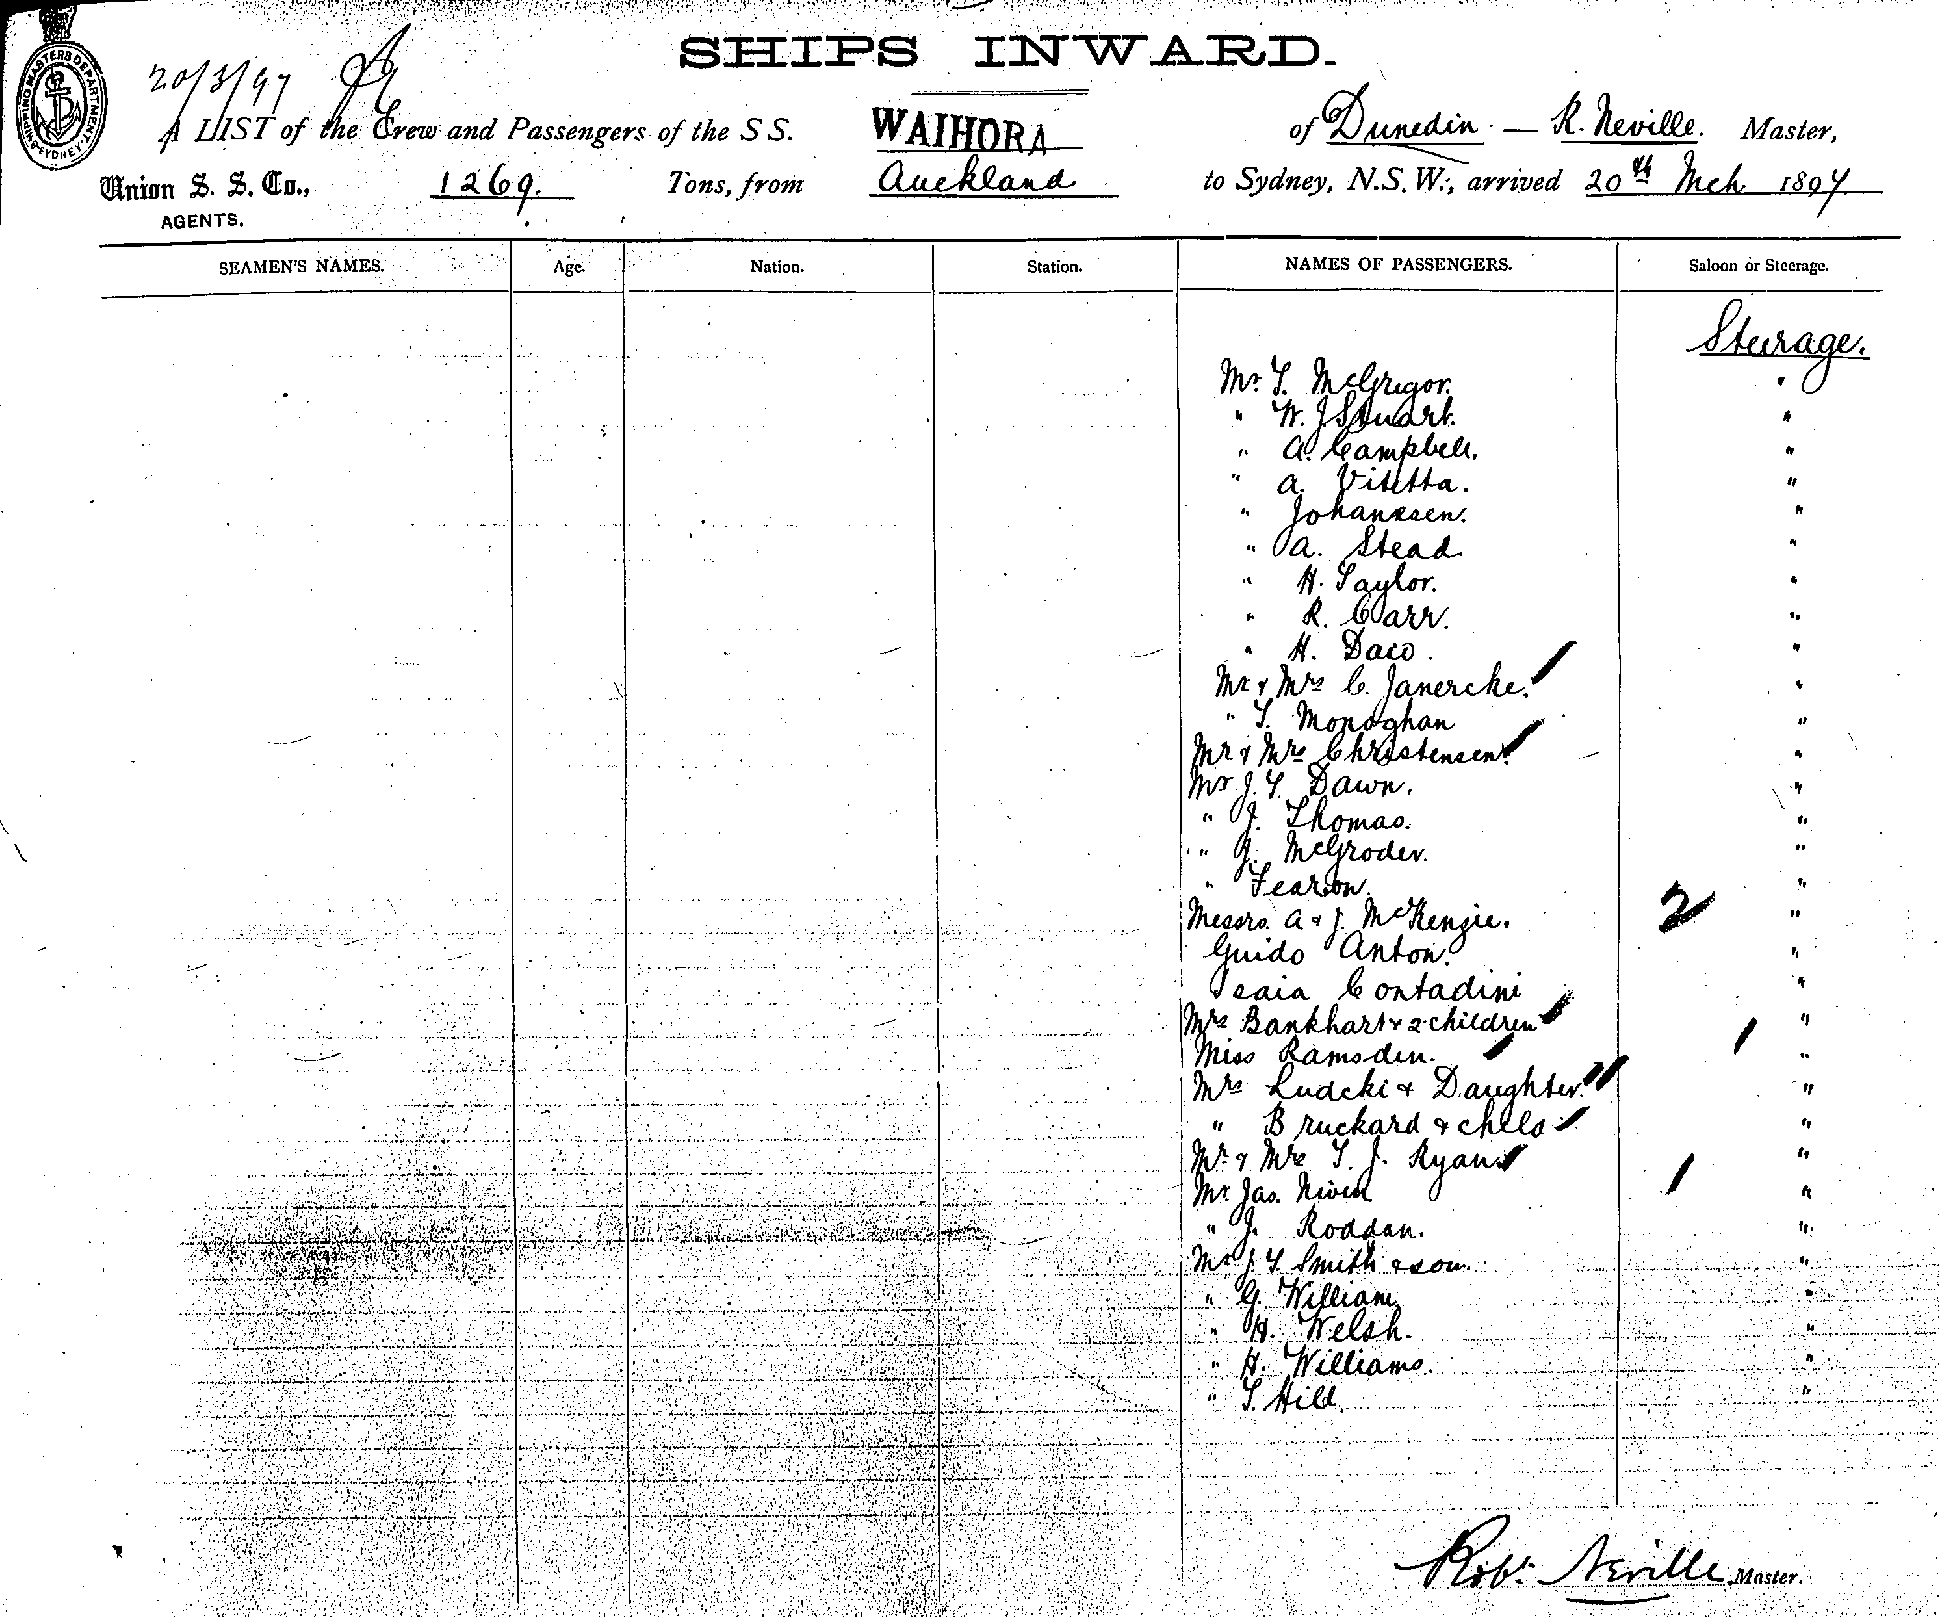 SHIPS INWARD.
20/3/97
SHIPPING MASTERS DEPARTMENT SYDNEY
A LIST of the Crew and Passengers of the S S. WAIHORA of Dunedin — R. Neville. Master,
Union S. S. Co., 1269. Tons, from Auckland to Sydney, N.S.W., arrived 20th Mch 1897
AGENTS.
SEAMEN'S NAMES. Age. Nation. Station. NAMES OF PASSENGERS. Saloon or Steerage.
Steerage.
Mr. T. McGrigor. "
" W. J Stuart. "
" A. Campbell. "
" A. Vitetta. "
" Johanssen. "
" A. Stead "
" H. Taylor. "
" R. Carr. "
" H. Daco. "
Mr & Mrs C. Janercke. "
" T. Monaghan "
Mr & Mrs Christensen "
Mr J. T. Dawn. "
" J. Thomas. "
" J. McGroder. "
" Fearon. "
Messrs. A & J. McKenzie. 2 "
Guido Anton. "
Isaia Contadini "
Mrs Bankhart & 2 children "
Miss Ramsden. 1 "
Mrs Ludcki & Daughter. "
" Bruckard & child "
Mr & Mrs T. J. Ryan "
Mr Jas. Niven 1 "
" J. Roddan. "
Mr J T Smith & son. "
" G. William "
" H. Welsh. "
" H. Williams. "
" T. Hill. "
Robt. Neville Master.